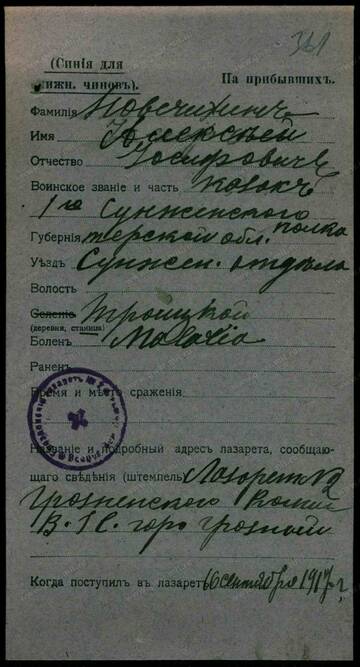 361
(Синія для
нижн. чиновъ).
На прибывшихъ.
Фамилія Новочихинъ
Имя Алексѣй
Отчество Іосифовичъ
Воинское званіе и часть казакъ
1го Сунженскаго полка
Губернія Терской обл.
Уѣздъ Сунжен. отдѣла
Волость
Селеніе Троицкой
(деревня, станица)
Боленъ Malaria
Раненъ
Время и мѣсто сраженія
Названіе и подробный адресъ лазарета, сообщаю-
щаго свѣдѣнія (штемпель) Лазаретъ №
Грозненскаго Комит
В. С. гор. Грозный
Когда поступилъ въ лазаретъ 10 сентября 1917 г.